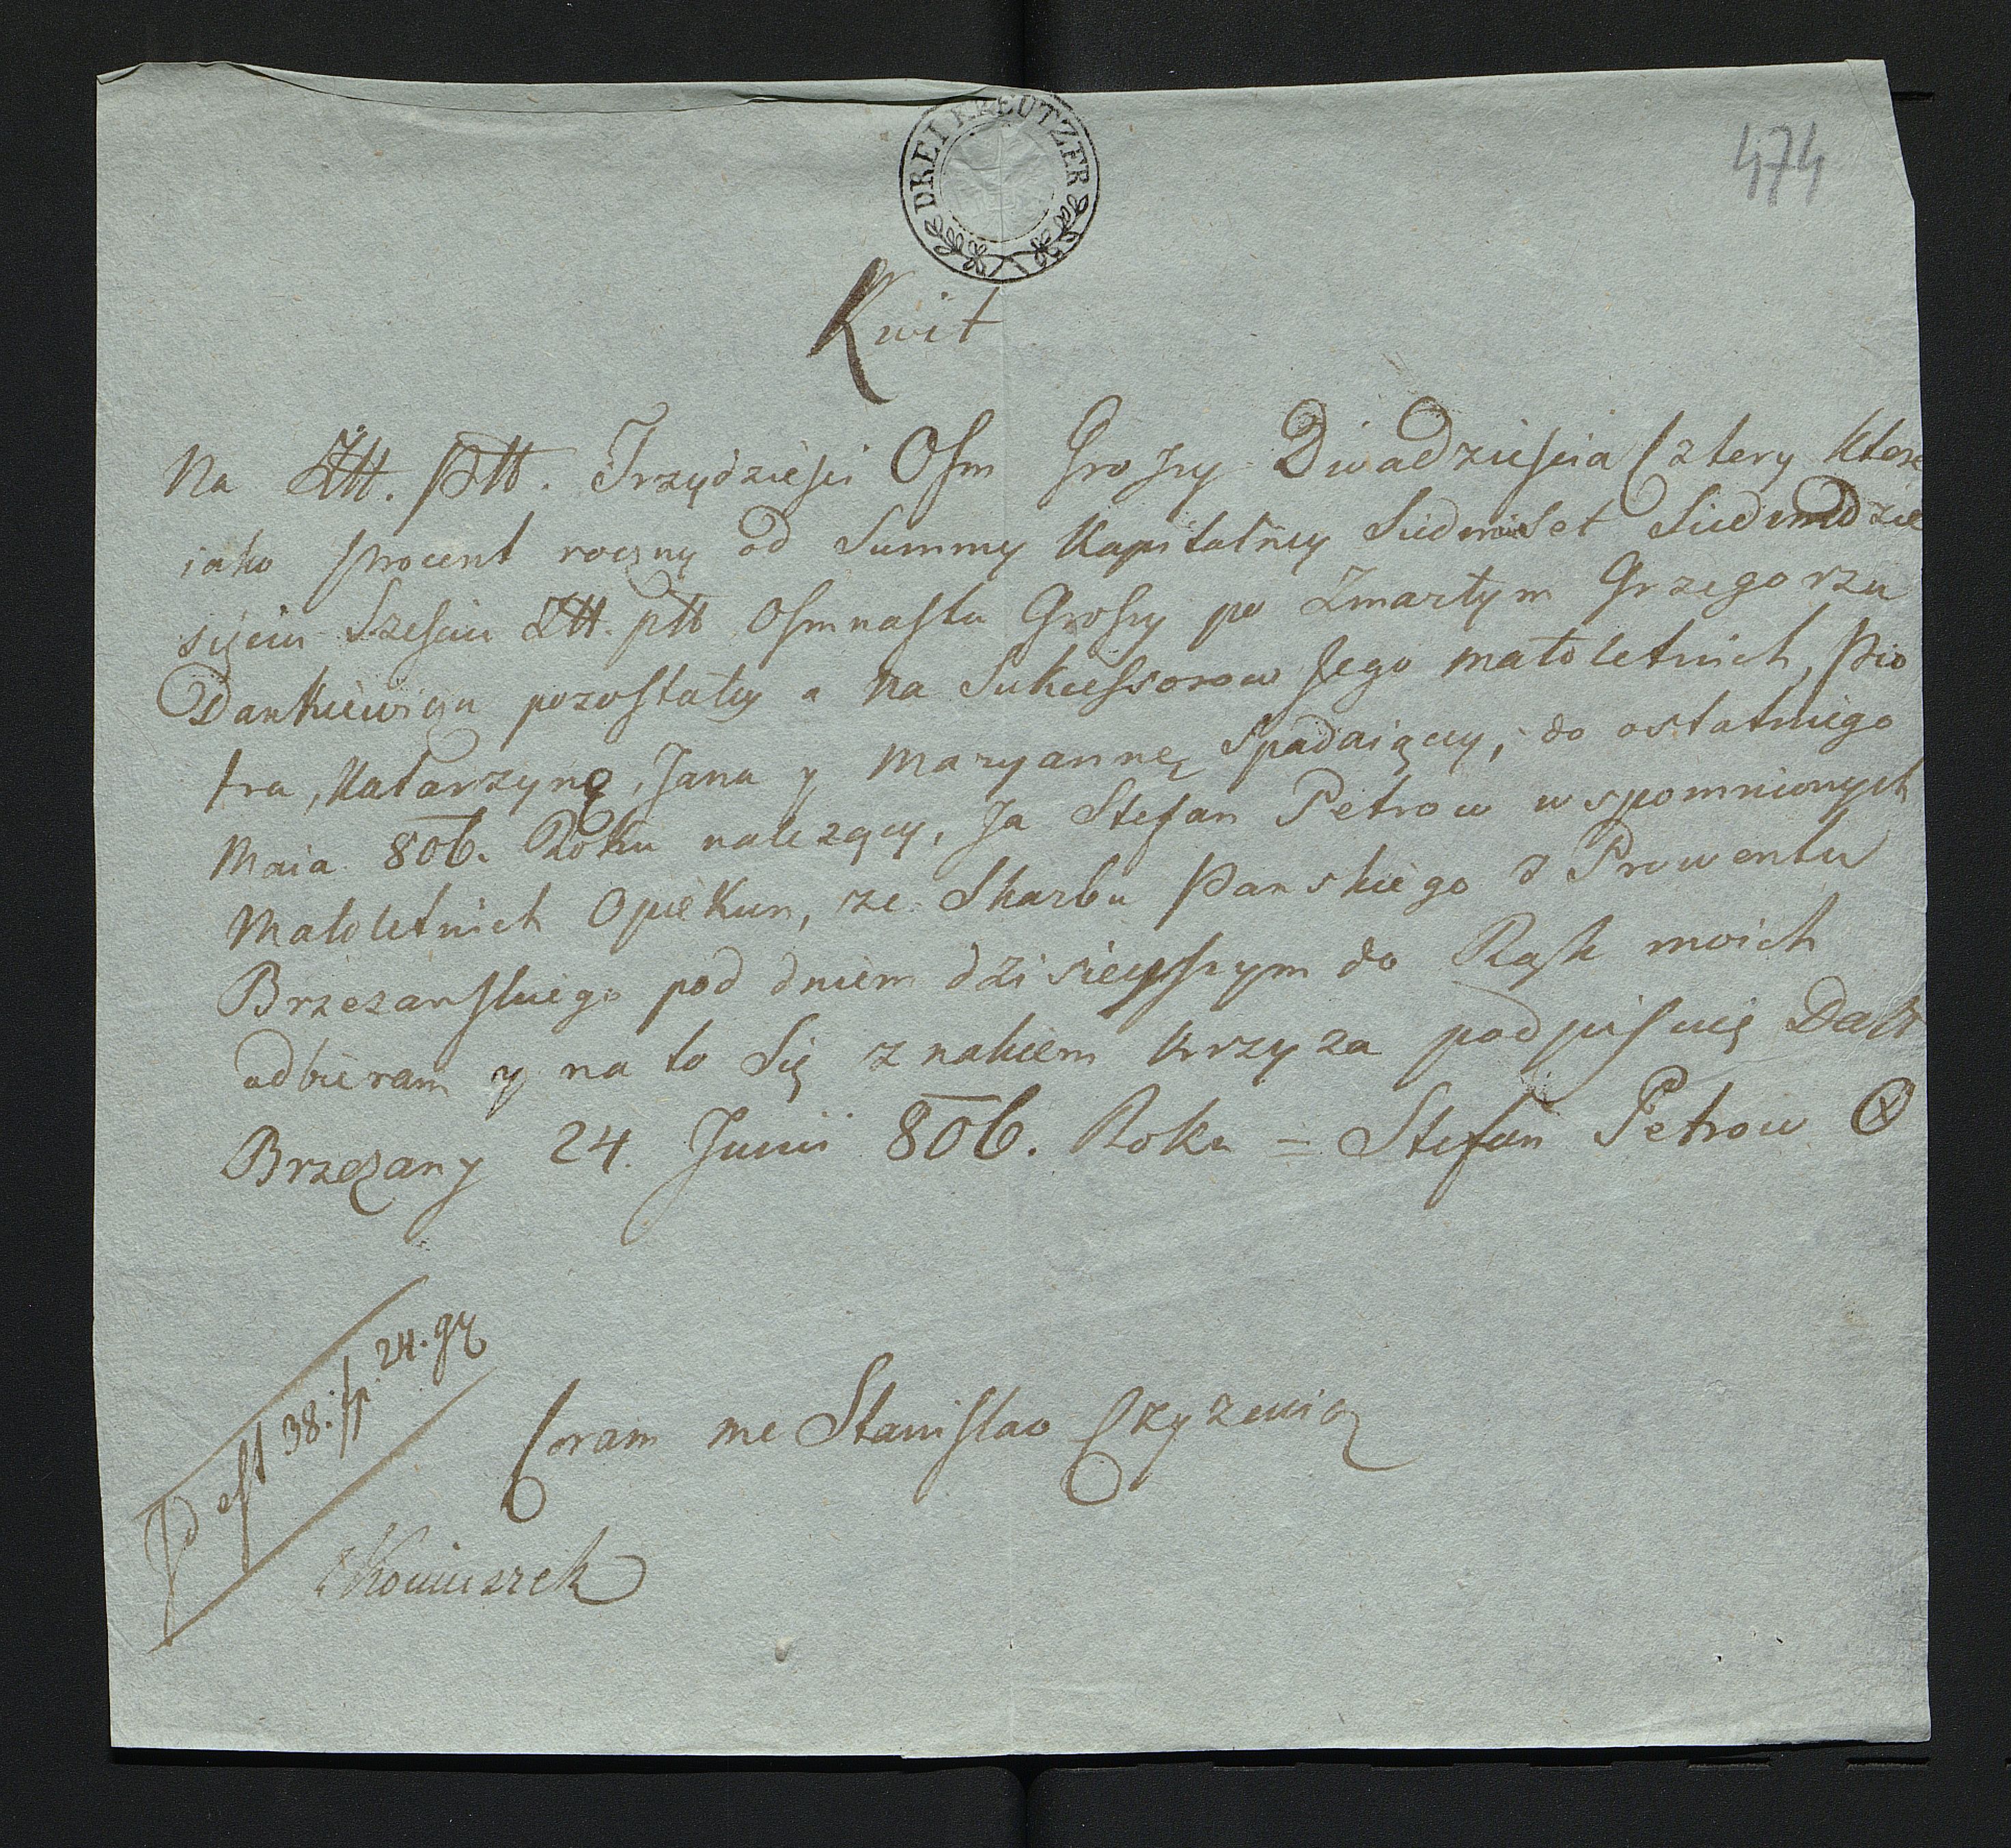 DREI KREUTZER
474
Kwit
Na Złł. Płł. Trzydzieści Osm Groszy Dwadzieścia Cztery ktore
iako procent roczny od Summy Kapitalney Siedmset Siedmdzie
sięciu Sześciu Złł. płł Osmnastu Groszy po Zmarłym Grzegorzu
Dankiewiczu pozostałey a na Sukcessorow Jego małoletnich, Pio
tra, Katarzynę, Jana y Maryannę Spadaiącey, do ostatniego
Maia 806. Roku należący, Ja Stefan Petrow wspomnionych
Małoletnich Opiekun, ze Skarbu Panskiego z Prowentu
Brzezanskiego pod dniem dzisieyszym do Rąk moich
odbieram y na to Się znakiem krzyża podpisuię Datt
Brzezany 24. Junii 806. Roku = Stefan Petrow
Id est 38. fp. 24. gr
Coram me Stanislao Czyzewicz